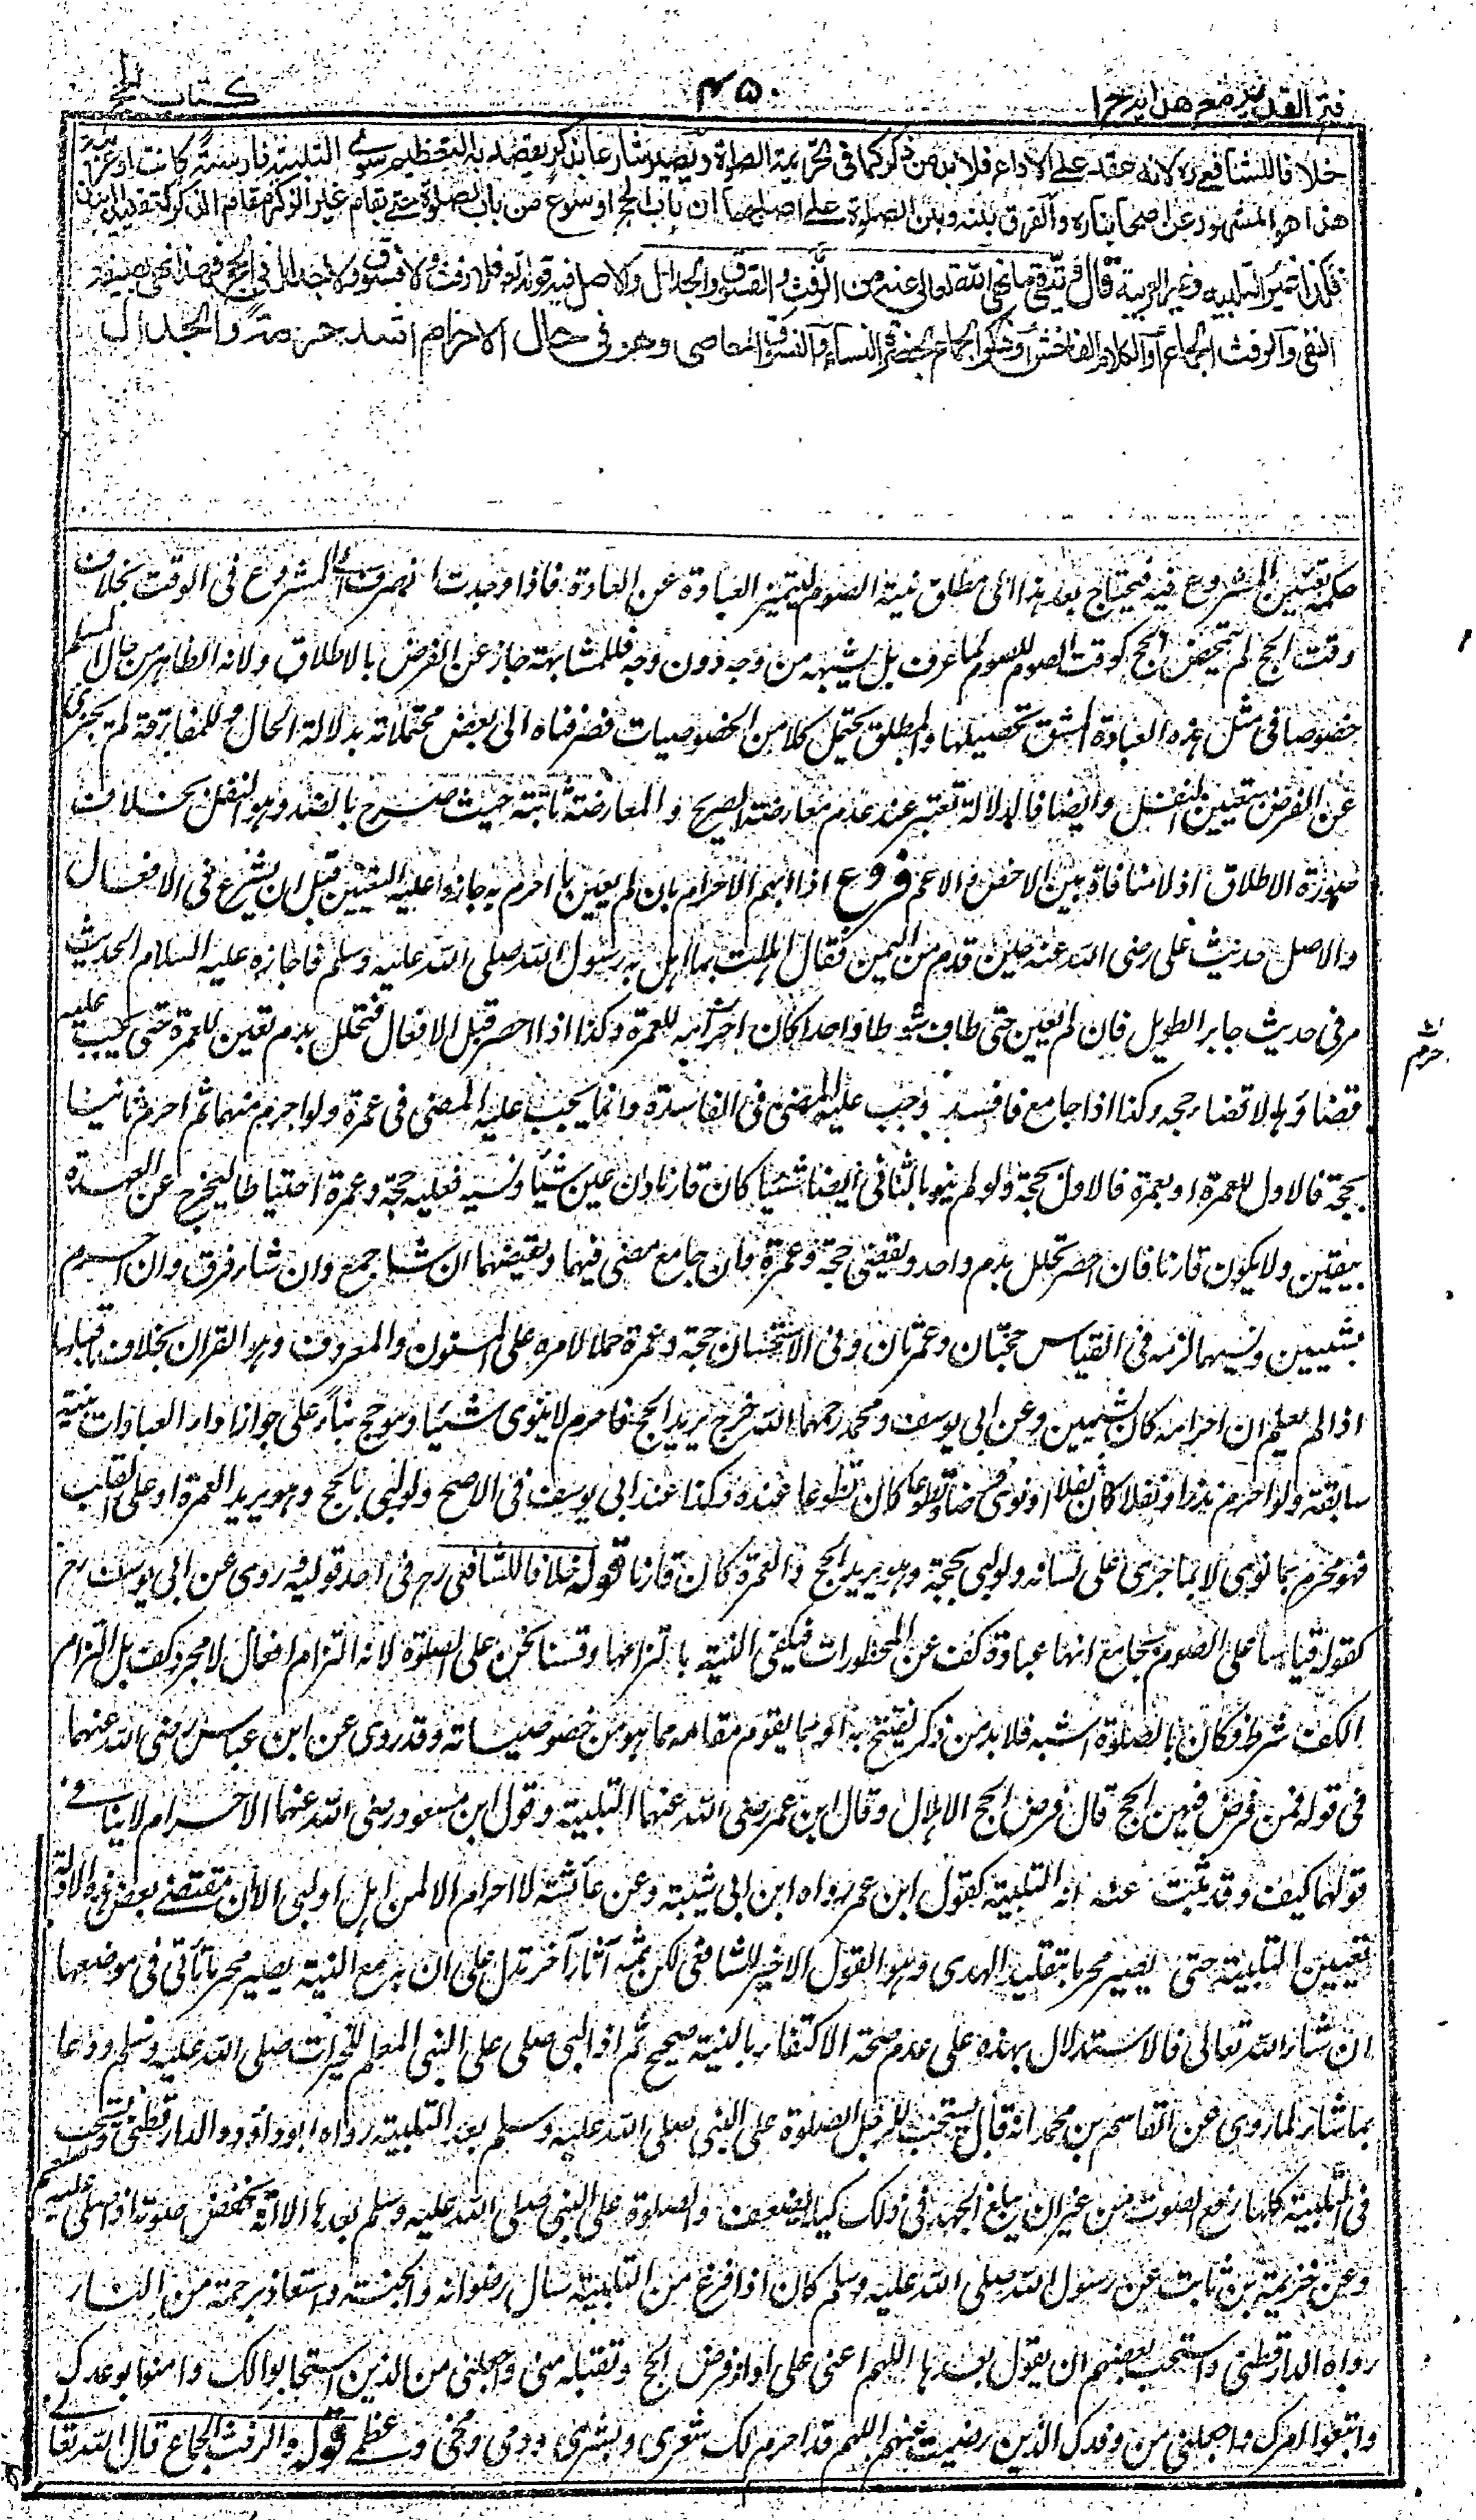 فتح القدير مع هدايه ج ١
٤٥٠
كتاب الحج
خلافا للشافعي ره لانه عقد على الاداء فلا بد من ذكر كما في تحريمة الصلوة ويصير شارعا بذكر يقصد به التعظيم سوى التلبية فارسية كانت او عربية
هذا هو المشهور عن اصحابنا ره والفرق بينه وبين الصلوة على اصلهما ان باب الحج اوسع من باب الصلوة حتى يقام غير الذكر مقام الذكر كتقليد البدن
فكذا غير التلبية وغير العربية قال ويتقي ما نهى الله تعالى عنه من الرفث والفسوق والجدال والاصل فيه قوله تع فلا رفث ولا فسوق ولا جدال في الحج فهذا نهي بصيغة
النفي والرفث الجماع او الكلام الفاحش او ذكر الجماع بحضرة النساء والفسوق المعاصي وهو في حال الاحرام اشد حرمة والجدال
حكمه تعيين المشروع فيه فيحتاج بعد هذا الى مطلق نية الصوم ليتميز العبادة عن العادة فاذا وجدت انصرف الى المشروع في الوقت بخلاف
وقت الحج لم يتمحض للحج كوقت الصوم للصوم لما عرف بل يشبهه من وجه دون وجه فللمشابهة جاز عن الفرض بالاطلاق ولانه الظاهر من حال المسلم
خصوصا في مثل هذه العبادة المشق تحصيلها والمطلق يحتمل كلا من الخصوصيات فصرفناه الى بعض محتملاته بدلالة الحال وللمفارقة لم يجز
عن الفرض بتعيين النفل وايضا فالدلالة تعتبر عند عدم معارضة الصريح والمعارضة ثابتة حيث صرح بالضد وهو النفل بخلاف
صورة الاطلاق اذ لا منافاة بين الاخص والاعم فروع اذا ابهم الاحرام بان لم يعين ما احرم به جاز وعليه التعيين قبل ان يشرع في الافعال
والاصل حديث علي رضي الله عنه حين قدم من اليمن فقال اهللت بما اهل به رسول الله صلى الله عليه وسلم فاجازه عليه السلام الحديث
مر في حديث جابر الطويل فان لم يعين حتى طاف شوطا واحدا كان احرامه للعمرة وكذا اذا احصر قبل الافعال فتحلل بدم تعين للعمرة حتى يجب عليه
قضاؤها لا قضاء حجه وكذا اذا جامع فافسد وجب عليه المضي في الفاسدة وانما يجب عليه المضي في عمرة ولو احرم مبهما ثم احرم ثانيا
بحجة فالاول للعمرة او بعمرة فالاول بحجة ولو لم ينو بالثاني ايضا شيئا كان قارنا وان عين شيئا ونسيه فعليه حجة وعمرة احتياطا ليخرج عن العهدة
بيقين ولا يكون قارنا فان احصر تحلل بدم واحد ويقضي حجة وعمرة وان جامع مضى فيهما ويقضيهما ان شاء جمع وان شاء فرق وان احرم
بشيئين ونسيهما لزمه في القياس حجتان وعمرتان وفي الاستحسان حجة وعمرة حملا لامره على المسنون والمعروف وهو القران بخلاف ما قبلها
اذ لم يعلم ان احرامه كان بشيئين وعن ابي يوسف ومحمد رحمهما الله خرج يريد الحج فاحرم لا ينوي شيئا وهو حج بناء على جواز اداء العبادات بنية
سابقة ولو احرم نذرا ونفلا كان نفلا او نوى فرضا وتطوعا كان تطوعا عنده وكذا عند ابي يوسف في الاصح ولو لبى بالحج وهو يريد العمرة او على القلب
فهو محرم بما نوى لا بما جرى على لسانه ولو لبى بحجة وهو يريد الحج والعمرة كان قارنا قوله خلافا للشافعي ره في احد قوليه وروى عن ابي يوسف رح
كقوله قياسا على الصوم بجامع انها عبادة كف عن المحظورات فيكفي النية بالتزامها وقسنا نحن على الصلوة لانه التزام افعال لا مجرد كف بل التزام
الكف شرط فكان بالصلوة اشبه فلا بد من ذكر يفتتح به او ما يقوم مقامه مما هو من خصوصياته وقد روى عن ابن عباس رضي الله عنهما
في قوله فمن فرض فيهن الحج قال فرض الحج الاهلال وقال ابن عمر رضي الله عنهما التلبية وقول ابن مسعود رضي الله عنهما الاحرام لا ينافي
قولهما كيف وقد ثبت عنه انه التلبية كقول ابن عمر رواه ابن ابي شيبة وعن عائشة لا احرام الا لمن اهل او لبى الا ان مقتضى بعض هذه الادلة
تعيين التلبية حتى يصير محرما بتقليد الهدى وهو القول الاخير للشافعي لكن ثمة آثار آخر تدل على ان به مع النية يصير محرما تأتي في موضعها
ان شاء الله تعالى فالاستدلال بهذه على عدم صحة الاكتفاء بالنية صحيح ثم اذا لبى صلى على النبي المعلم للخيرات صلى الله عليه وسلم ودعا
بما شاء لما روى عن القاسم بن محمد انه قال يستحب للرجل الصلوة على النبي صلى الله عليه وسلم بعد التلبية رواه ابوداؤد والدارقطني ويستحب
في التلبية كلها رفع الصوت من غير ان يبلغ الجهد في ذلك كيلا يضعف والصلوة على النبي صلى الله عليه وسلم بعدها الا انه يخفض صوته اذا صلى عليه
وعن خزيمة بن ثابت عن رسول الله صلى الله عليه وسلم كان اذا فرغ من التلبية سال رضوانه والجنة واستعاذ برحمته من النار
رواه الدارقطني واستحب بعضهم ان يقول بعدها اللهم اعني على اداء فرض الحج وتقبله مني واجعلني من الذين استجابوا لك وامنوا بوعدك
واتبعوا امرك واجعلني من وفدك الذين رضيت عنهم اللهم قد احرم لك شعري وبشري ودمي ومخي وعظمي قوله والرفث الجماع قال الله تعالى